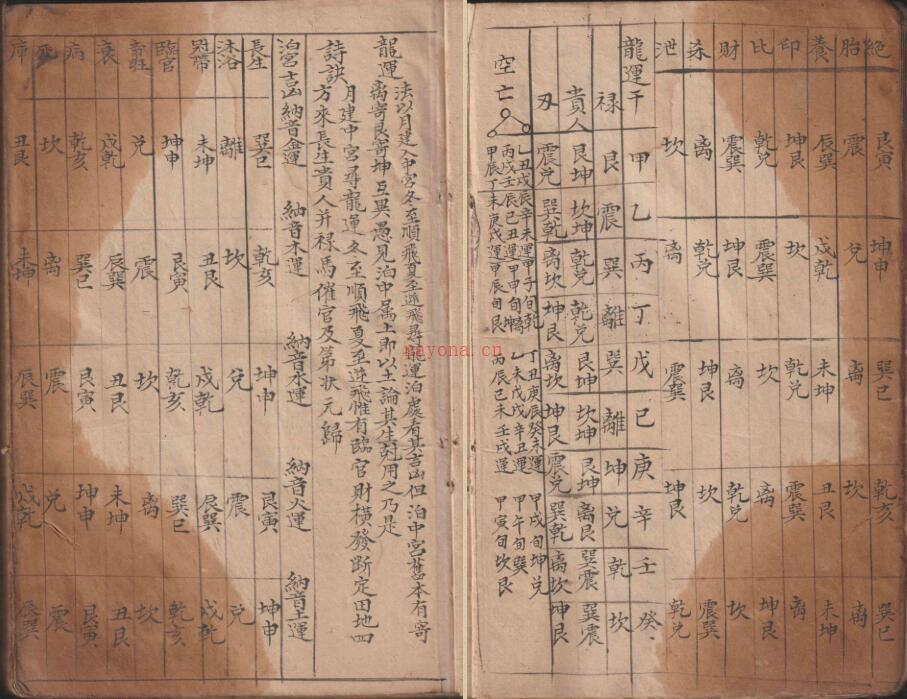 絕 艮寅 坤申 巽巳 乾亥 巽巳
胎 震 兌 离 坎 离
養 辰巽 戌乾 未坤 丑艮 未坤
印 坤艮 坎 乾兌 震巽 离
比 乾兌 震巽 坎 离 坤艮
財 震巽 坤艮 离 乾兌 坎
杀 离 乾兌 坤艮 坎 震巽
泄 坎 离 震巽 坤艮 乾兌
龍運干 甲 乙 丙 丁 戊 己 庚 辛 壬 癸
禄 艮 震 巽 離 巽 離 坤 兌 乾 坎
貴人 艮坤 坎坤 乾兌 乾兌 艮坤 坎坤 艮坤 离艮 巽震 巽震
刃 震兌 巽乾 离坎 坤艮 离坎 坤艮 震兌 巽乾 离坎 坤艮
空亡
乙丑戊辰辛未運甲子旬乾 丁丑庚辰癸未運 甲戌旬坤兌
丙戌壬辰巳丑運甲申旬坤离 乙未戊戌辛丑運 甲午旬巽
甲辰丁未庚戌運甲辰旬艮 丙辰己未壬戌運 甲寅旬坎艮
法以月建入中宮冬至順飛夏至逆飛尋龍運泊處看其吉凶但泊中宮舊本有寄
龍運
离寄艮寄坤互異愚見泊中属土即以土論其生尅用之乃是
月建中宮尋龍運冬至順飛夏至逆飛惟有臨官財橫發斷定田地四
詩訣
方來長生貴人并禄馬催官及第狀元歸
泊宮吉凶 納音金運 納音木運 納音水運 納音火運 納音土運
長生 巽巳 乾亥 坤申 艮寅 坤申
沐浴 離 坎 兌 震 兌
冠帶 未坤 丑艮 戌乾 辰巽 戌乾
臨官 坤申 艮寅 乾亥 巽巳 乾亥
帝旺 兌 震 坎 离 坎
衰 戌乾 辰巽 丑艮 未坤 丑艮
病 乾亥 巽巳 艮寅 坤申 艮寅
死 坎 离 震 兌 震
庫 丑艮 未坤 辰巽 戌乾 辰巽
nayona.cn